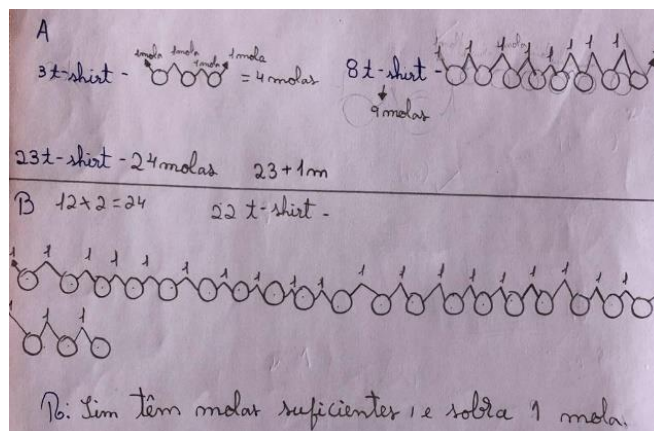 A
1mola 1mola 1mola 1mola
3 t-shirt - = 4 molas
1 1 1 1 1 1 1 1
8 t-shirt -
9 molas
23 t-shirt - 24 molas 23 + 1m
B 12 x 2 = 24 22 t-shirt -
1 1 1 1 1 1 1 1 1 1 1 1 1 1 1 1 1 1 1 1
1 1 1
R: Sim têm molas suficientes, e sobra 1 mola.